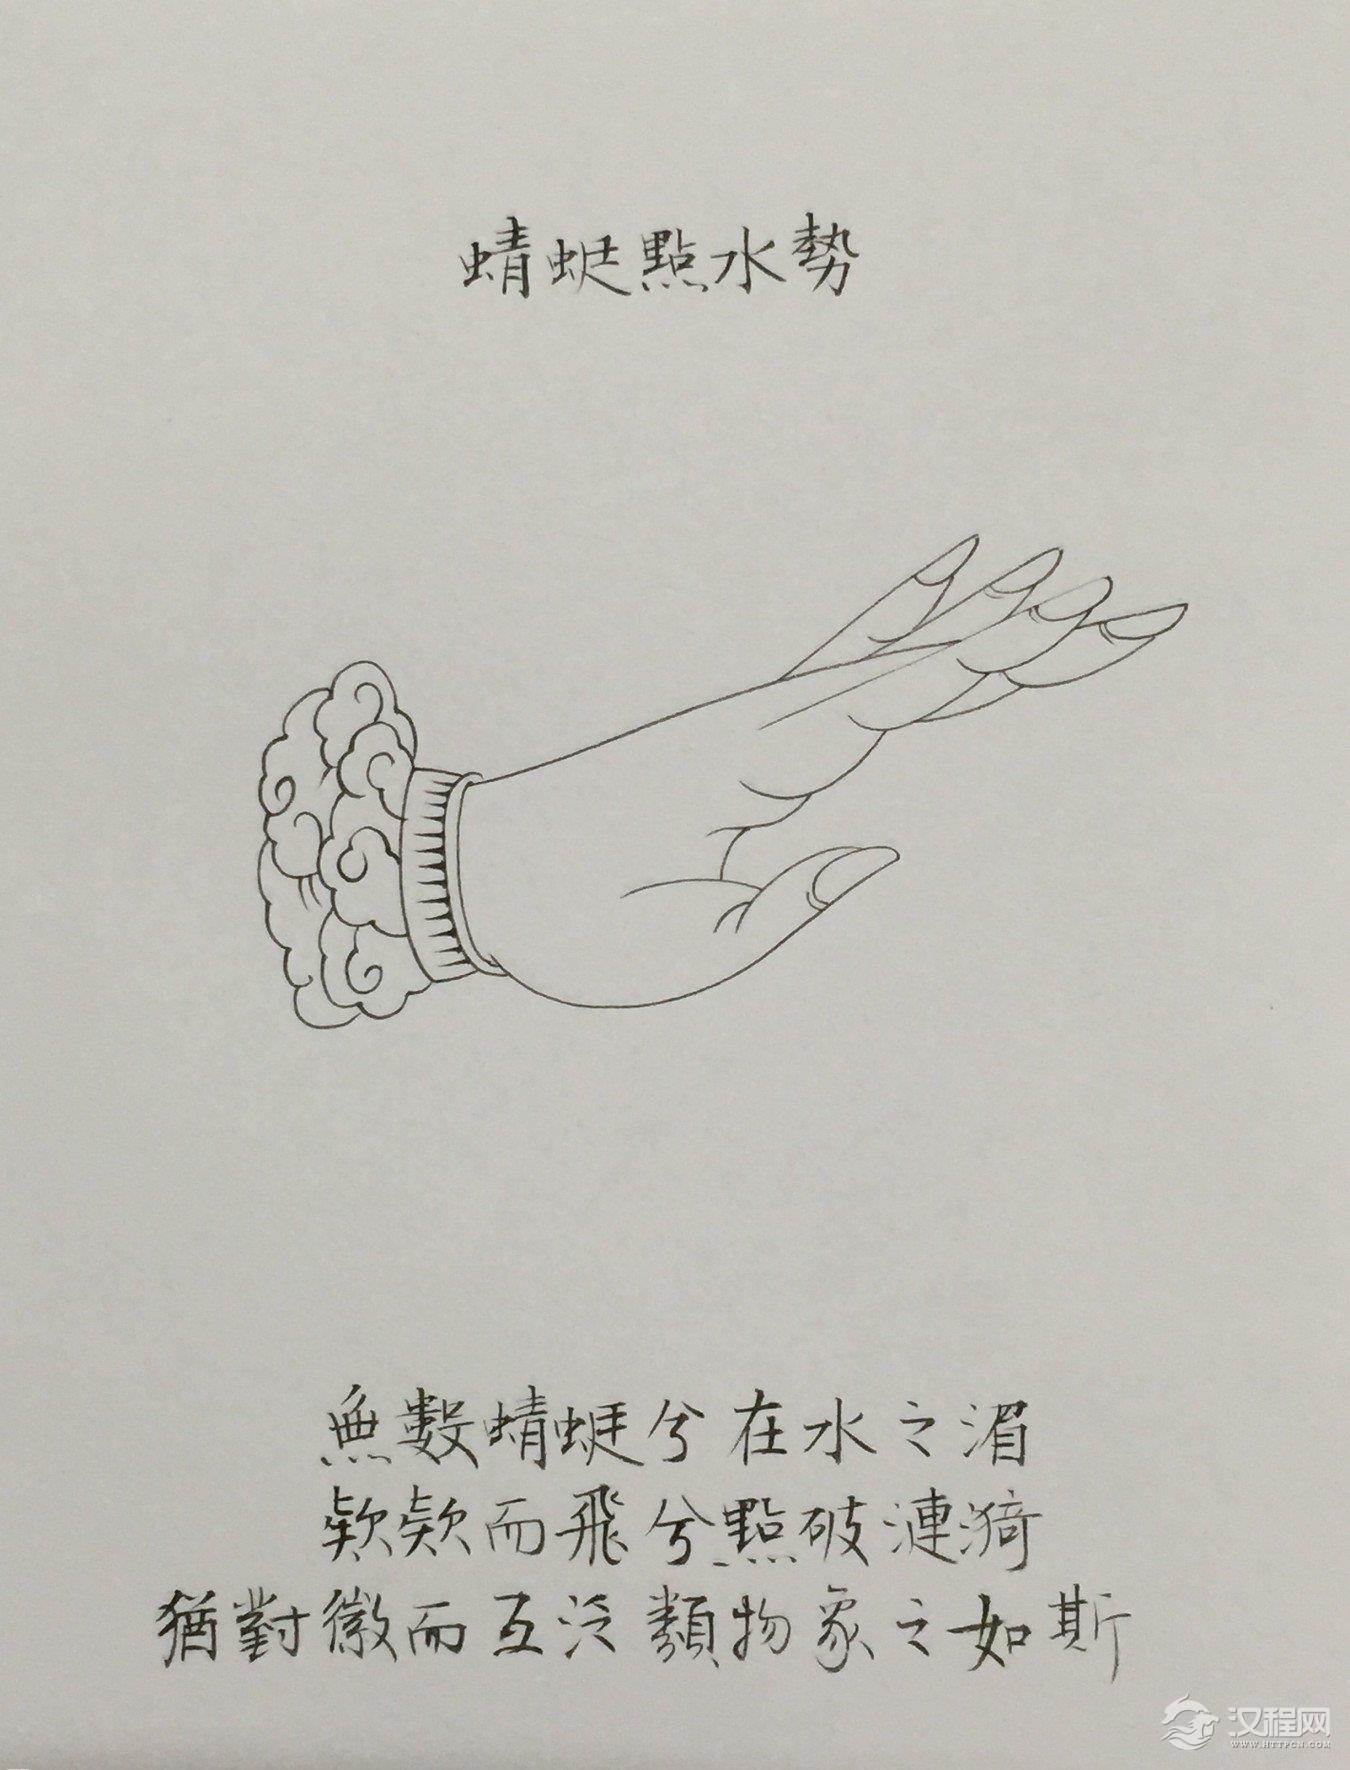 蜻蜓點水勢
無數蜻蜓兮在水之湄
欵欵而飛兮點破漣漪
猶對徽而互泛類物象之如斯
汉程网
WWW.HTTPCN.COM